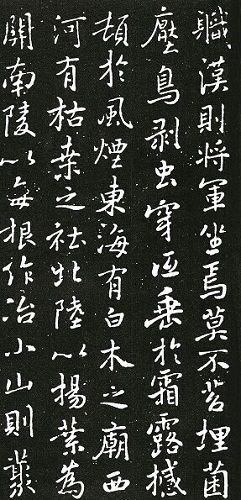 職漢則將軍坐焉莫不苔埋菌
壓鳥剥虫穿低垂於霜露撼
頓於風煙東海有白木之廟西
河有枯桒之社北陸以揚葉為
關南陵以每根作冶小山則藂